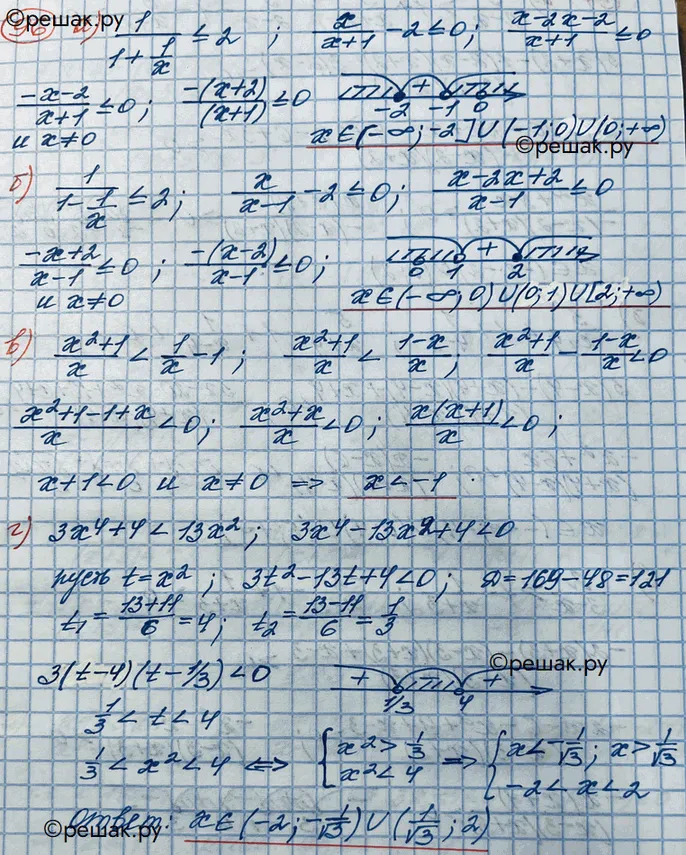 ©решак.ру
96 а) 1/(1 + 1/x) ≤ 2 ; x/(x+1) − 2 ≤ 0 ; (x−2x−2)/(x+1) ≤ 0
(−x−2)/(x+1) ≤ 0 ; −(x+2)/(x+1) ≤ 0 + −2 −1 0
и x≠0 x∈(−∞;−2]∪(−1;0)∪(0;+∞)
©решак.ру
б) 1/(1 − 1/x) ≤ 2 ; x/(x−1) − 2 ≤ 0 ; (x−2x+2)/(x−1) ≤ 0
(−x+2)/(x−1) ≤ 0 ; −(x−2)/(x−1) ≤ 0 ; + 0 1 2
и x≠0 x∈(−∞;0)∪(0;1)∪[2;+∞)
в) (x²+1)/x < 1/x − 1 ; (x²+1)/x < (1−x)/x ; (x²+1)/x − (1−x)/x < 0
(x²+1−1+x)/x < 0 ; (x²+x)/x < 0 ; x(x+1)/x < 0 ;
x+1<0 и x≠0 => x<−1
г) 3x⁴+4 < 13x² ; 3x⁴−13x²+4<0
пусть t=x² ; 3t²−13t+4<0 ; D=169−48=121
t₁ = (13+11)/6 = 4 ; t₂ = (13−11)/6 = 1/3
©решак.ру
3(t−4)(t−1/3)<0 + + 1/3 4
1/3 < t < 4
1/3 < x² < 4 <=> { x² > 1/3 x² < 4 => { x < −1/√3 ; x > 1/√3 −2 < x < 2
Ответ: x∈(−2;−1/√3)∪(1/√3;2)
©решак.ру